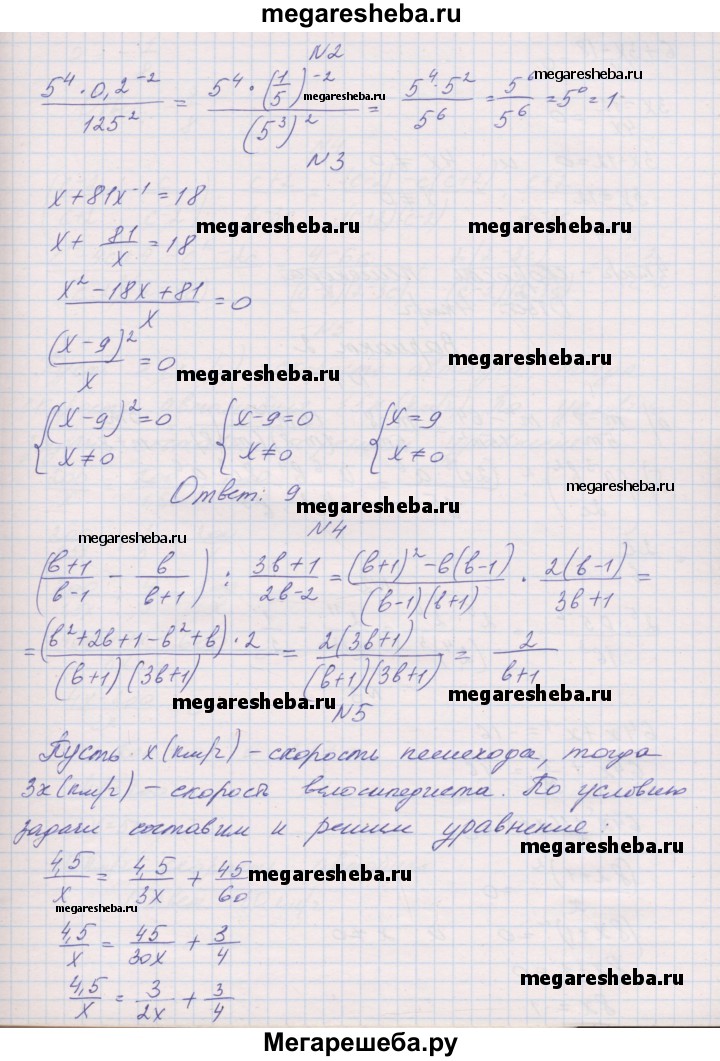 megaresheba.ru
N2
5⁴·0,2⁻² / 125² = 5⁴·(1/5)⁻² / (5³)² = 5⁴·5² / 5⁶ = 5⁶ / 5⁶ = 5⁰ = 1
megaresheba.ru
megaresheba.ru
N3
x + 81x⁻¹ = 18
megaresheba.ru megaresheba.ru
x + 81/x = 18
(x² - 18x + 81)/x = 0
megaresheba.ru
(x-9)²/x = 0
megaresheba.ru
{(x-9)² = 0 {x-9=0 {x=9
x≠0 x≠0 x≠0
Ответ: 9
megaresheba.ru
megaresheba.ru
N4
megaresheba.ru
megaresheba.ru
((в+1)/(в-1) - в/(в+1)) : (3в+1)/(2в-2) = ((в+1)² - в(в-1))/((в-1)(в+1)) · 2(в-1)/(3в+1) =
= (в²+2в+1-в²+в)·2 / ((в+1)(3в+1)) = 2(3в+1)/((в+1)(3в+1)) = 2/(в+1)
megaresheba.ru megaresheba.ru
N5
Пусть x(км/г) – скорость пешехода, тогда
3x(км/г) – скорость велосипедиста. По условию
задачи составим и решим уравнение:
megaresheba.ru
4,5/x = 4,5/3x + 45/60
megaresheba.ru
megaresheba.ru
4,5/x = 45/30x + 3/4
megaresheba.ru
4,5/x = 3/2x + 3/4
Мегарешеба.ру